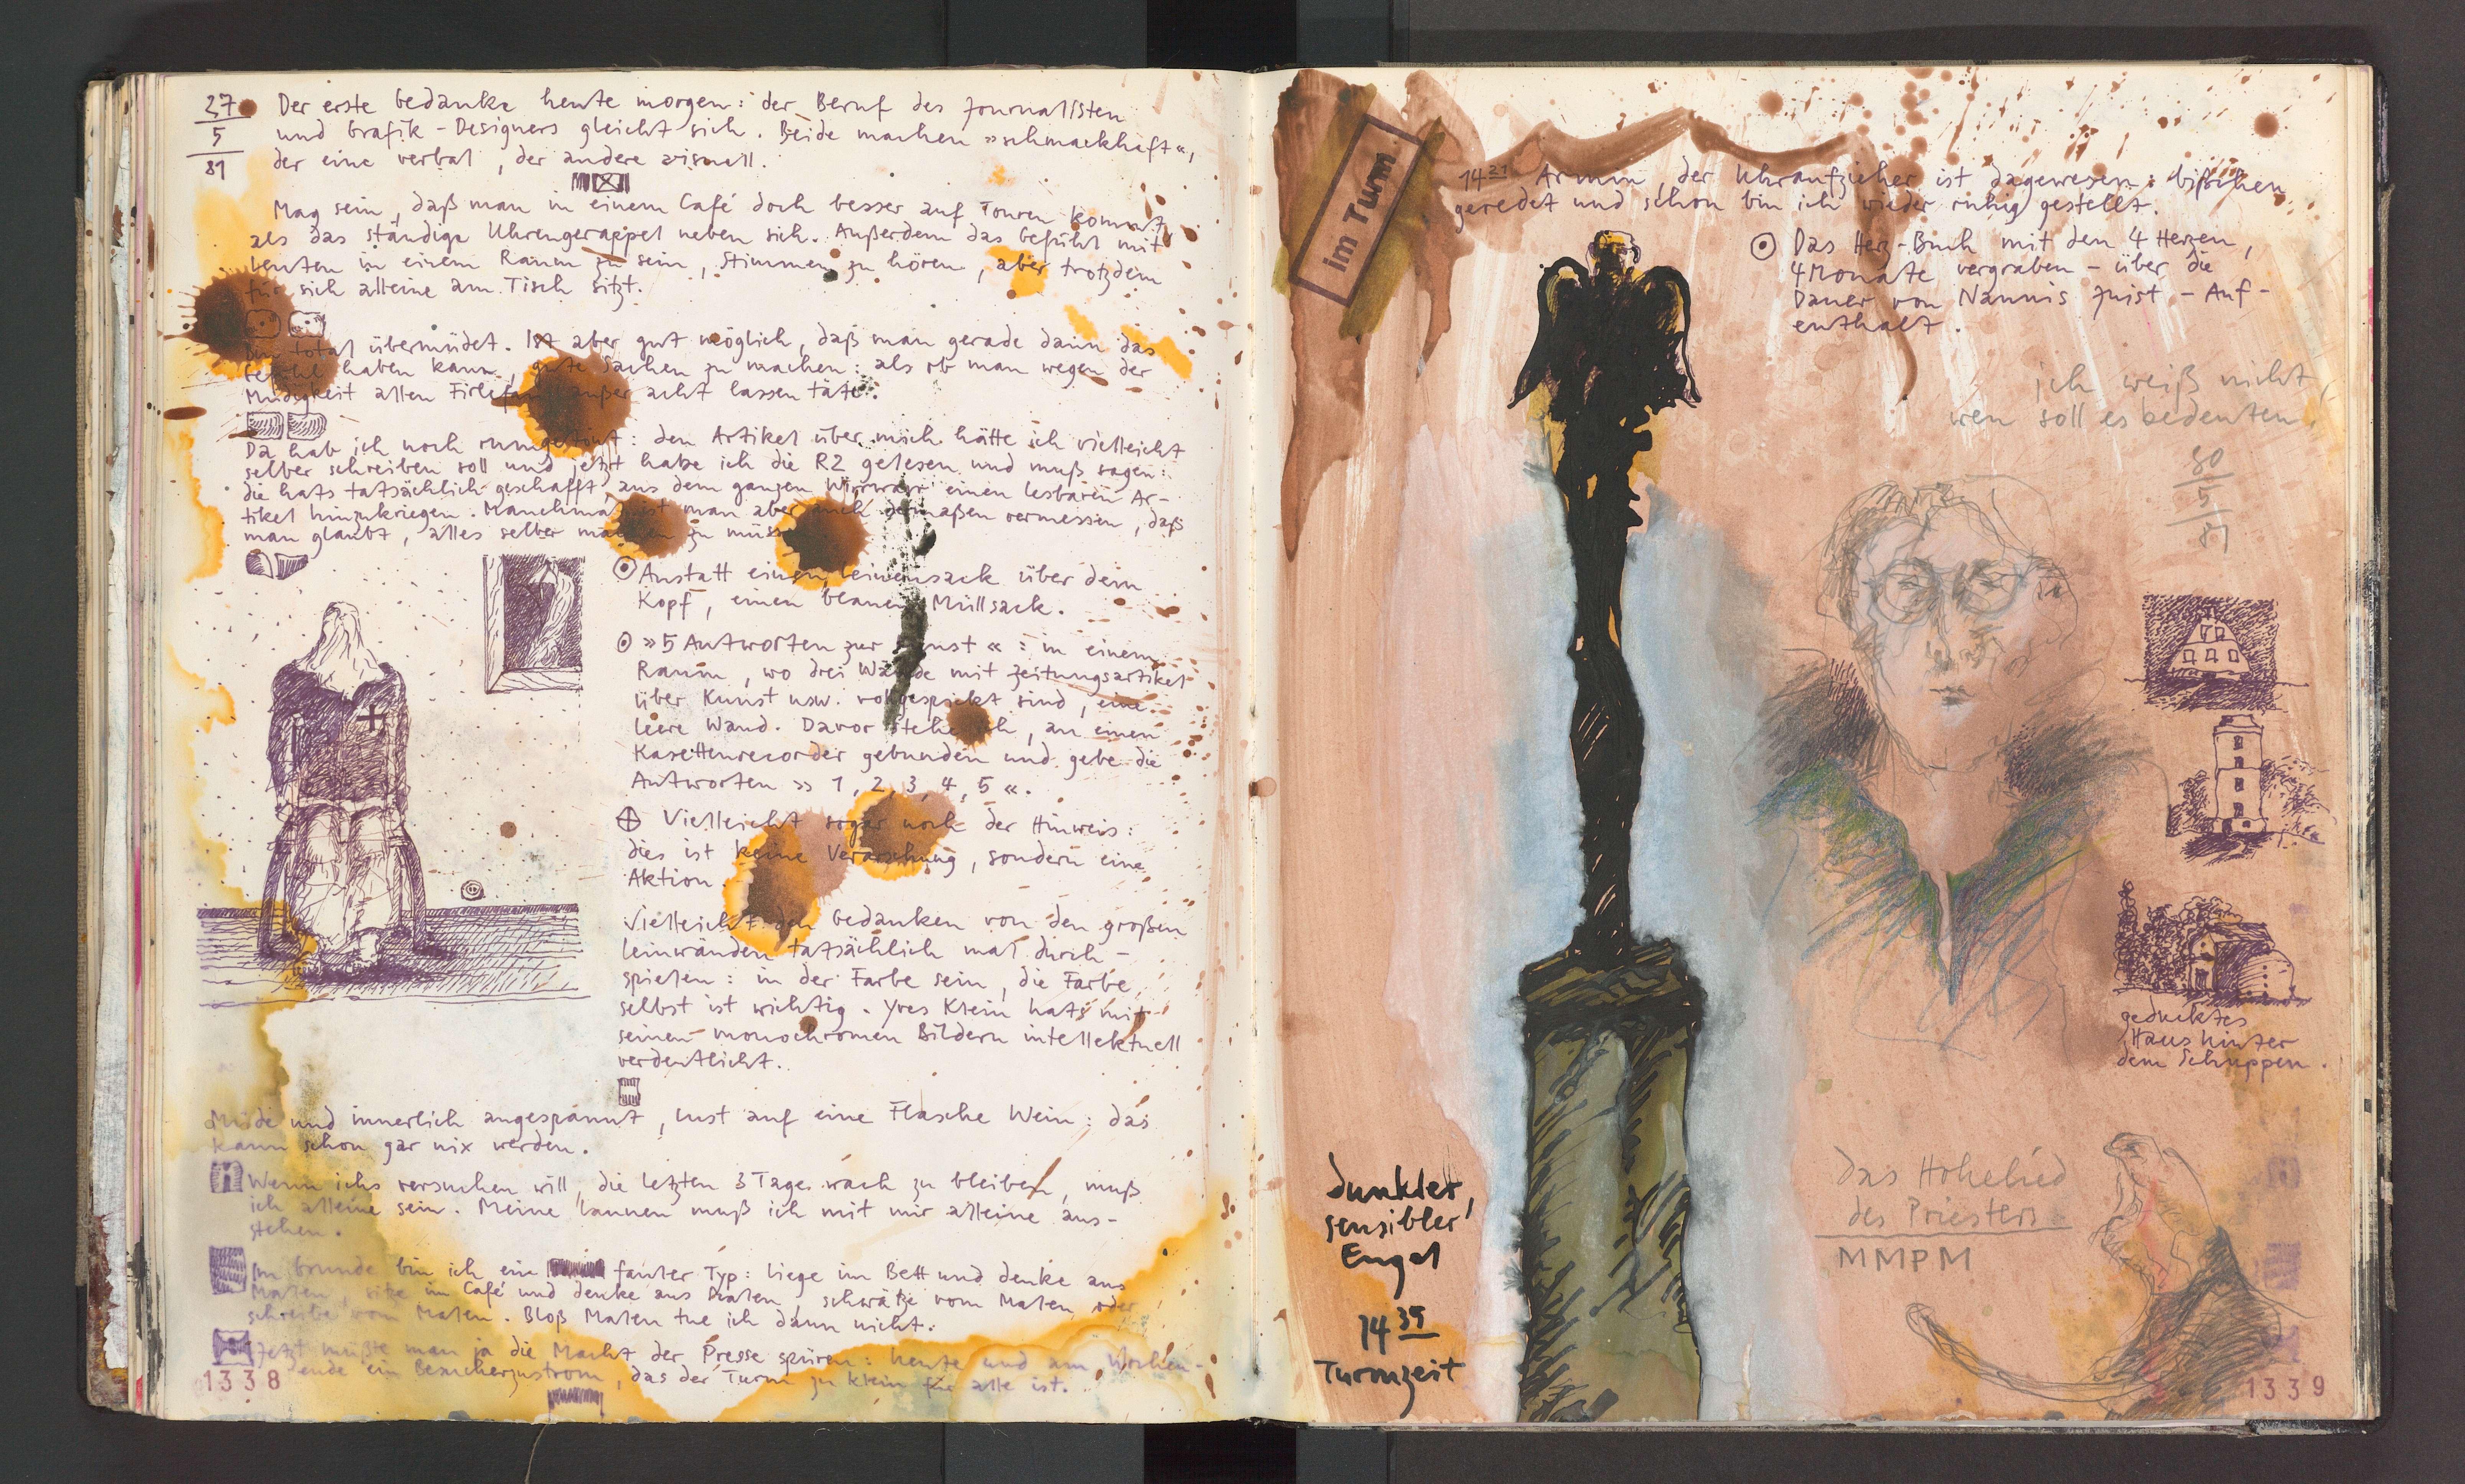 27
5
81
Der erste Gedanke heute morgen: der Beruf des Journalisten
und Grafik-Designers gleicht sich. Beide machen »schmackhaft«,
der eine verbal, der andere visuell.
Mag sein, daß man in einem Café doch besser auf Touren kommt,
als das ständige Uhrengerappel neben sich. Außerdem das Gefühl mit
Leuten in einem Raum zu sein, Stimmen zu hören, aber trotzdem
für sich alleine am Tisch sitzt.
Bin total übermüdet. Ist aber gut möglich, daß man gerade dann das
Gefühl haben kann, gute Sachen zu machen: als ob man wegen der
Müdigkeit allen Firlefanz außer acht lassen täte.
Da hab ich noch rumgetönt: den Artikel über mich hätte ich vielleicht
selber schreiben soll und jetzt habe ich die RZ gelesen und muß sagen:
die hats tatsächlich geschafft, aus dem ganzen Wirrwarr einen lesbaren Ar-
tikel hinzukriegen. Manchmal ist man aber auch dermaßen vermessen, daß
man glaubt, alles selber machen zu müssen.
Anstatt einen Leinensack über dem
Kopf, einen blauen Müllsack.
»5 Antworten zur Kunst«: in einem
Raum, wo drei Wände mit Zeitungsartikel
über Kunst usw. vollgespickt sind, eine
leere Wand. Davor stehe ich, an einen
Kasettenrecorder gebunden und gebe die
Antworten »1, 2, 3, 4, 5«.
Vielleicht sogar noch der Hinweis:
dies ist keine Verarschung, sondern eine
Aktion.
Vielleicht den Gedanken von den großen
Leinwänden tatsächlich mal durch-
spielen: in der Farbe sein, die Farbe
selbst ist wichtig. Yves Klein hats mit
seinen monochromen Bildern intellektuell
verdeutlicht.
Müde und innerlich angespannt, Lust auf eine Flasche Wein: das
kann schon gar nix werden.
Wenn ichs versuchen will, die letzten 3 Tage wach zu bleiben, muß
ich alleine sein. Meine Launen muß ich mit mir alleine aus-
stehen.
Im Grunde bin ich ein fauler Typ: liege im Bett und denke ans
Malen, sitze im Café und denke ans Malen, schwätze vom Malen oder
schreibe vom Malen. Bloß Malen tue ich dann nicht.
Jetzt müßte man ja die Macht der Presse spüren: heute und am Wochen-
ende ein Besucherzustrom, das der Turm zu klein für alle ist.
1338
im Turm
14 21 Armin, der Uhraufzieher ist dagewesen: bißchen
geredet und schon bin ich wieder ruhig gestellt.
Das Herz-Buch mit den 4 Herzen,
4 Monate vergraben - über die
Dauer von Nannis Juist - Auf-
enthalt.
ich weiß nicht,
wen soll es bedeuten.
30
5
81
geducktes
Haus hinter
dem Schuppen.
dunkler,
sensibler
Engel
14 39
Turmzeit
Das Hohelied
des Priesters
MMPM
1339